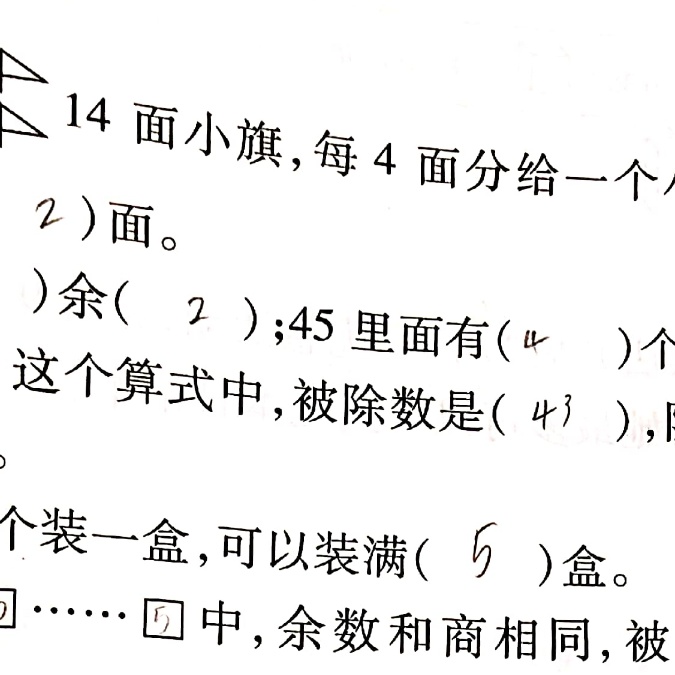 14 面小旗,每 4 面分给一个
2 )面。
)余( 2 );45 里面有( 4 )个
这个算式中,被除数是( 43 ),
。
个装一盒,可以装满( 5 )盒。
…… 5 中,余数和商相同,被